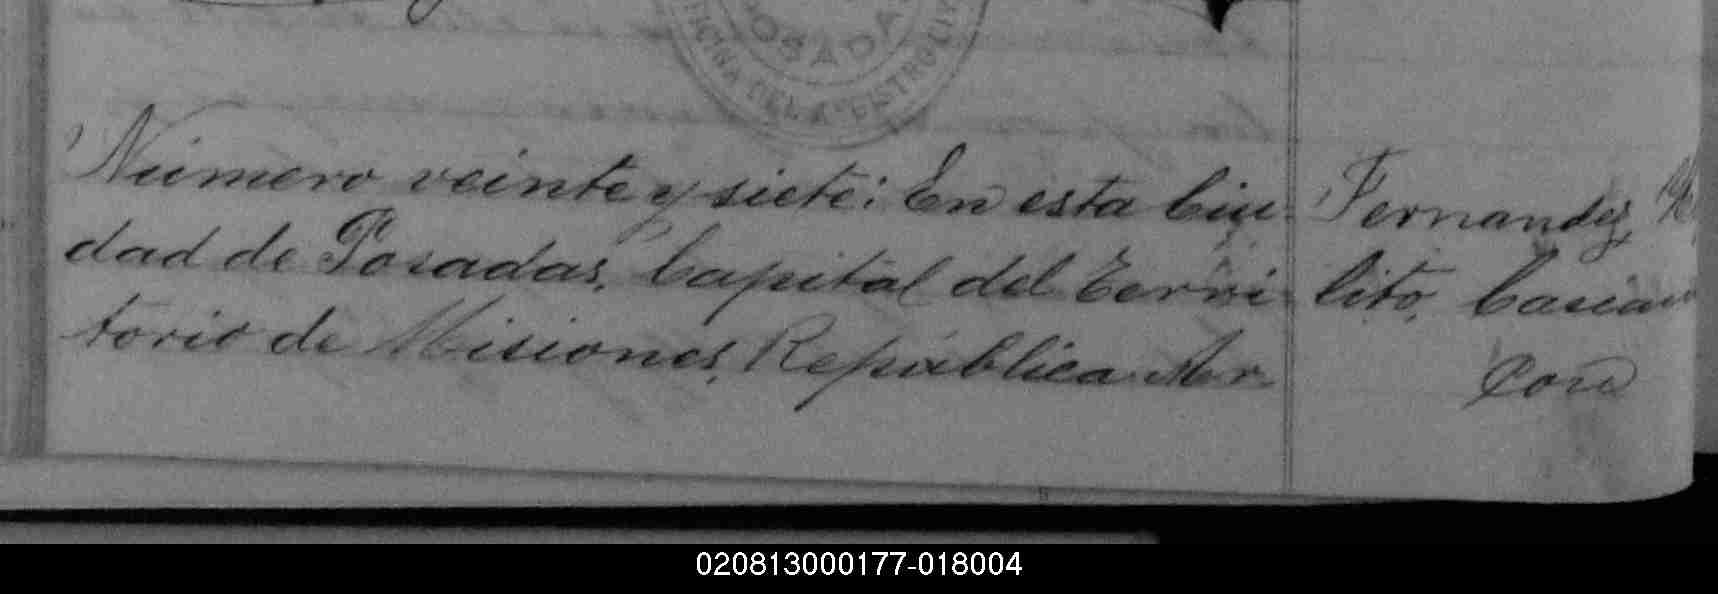 POSADAS
OFICINA DEL REGISTRO CIVIL
Número veinte y siete: En esta Ciu-
dad de Posadas, Capital del Terri-
torio de Misiones, República Ar-
Fernandez,
lito,
020813000177-018004